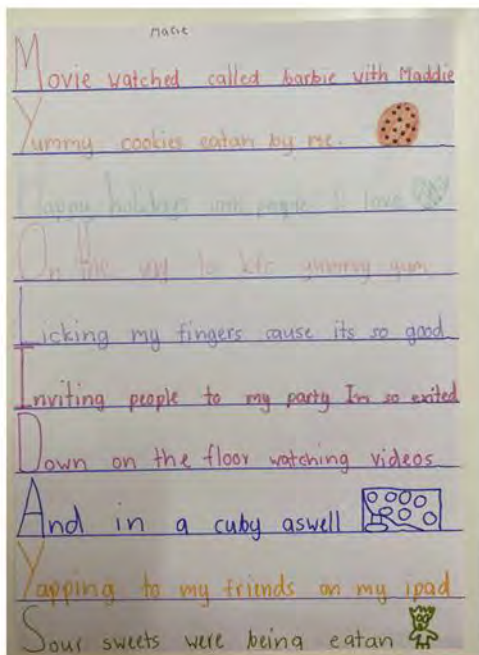 Macie
Movie watched called barbie with Maddie
Yummy cookies eatan by me.
Happy holidays with people I love
On the way to kfc yummy yum
Licking my fingers cause its so good
Inviting people to my party Im so exited
Down on the floor watching videos
And in a cuby aswell
Yapping to my friends on my ipad
Sour sweets were being eatan